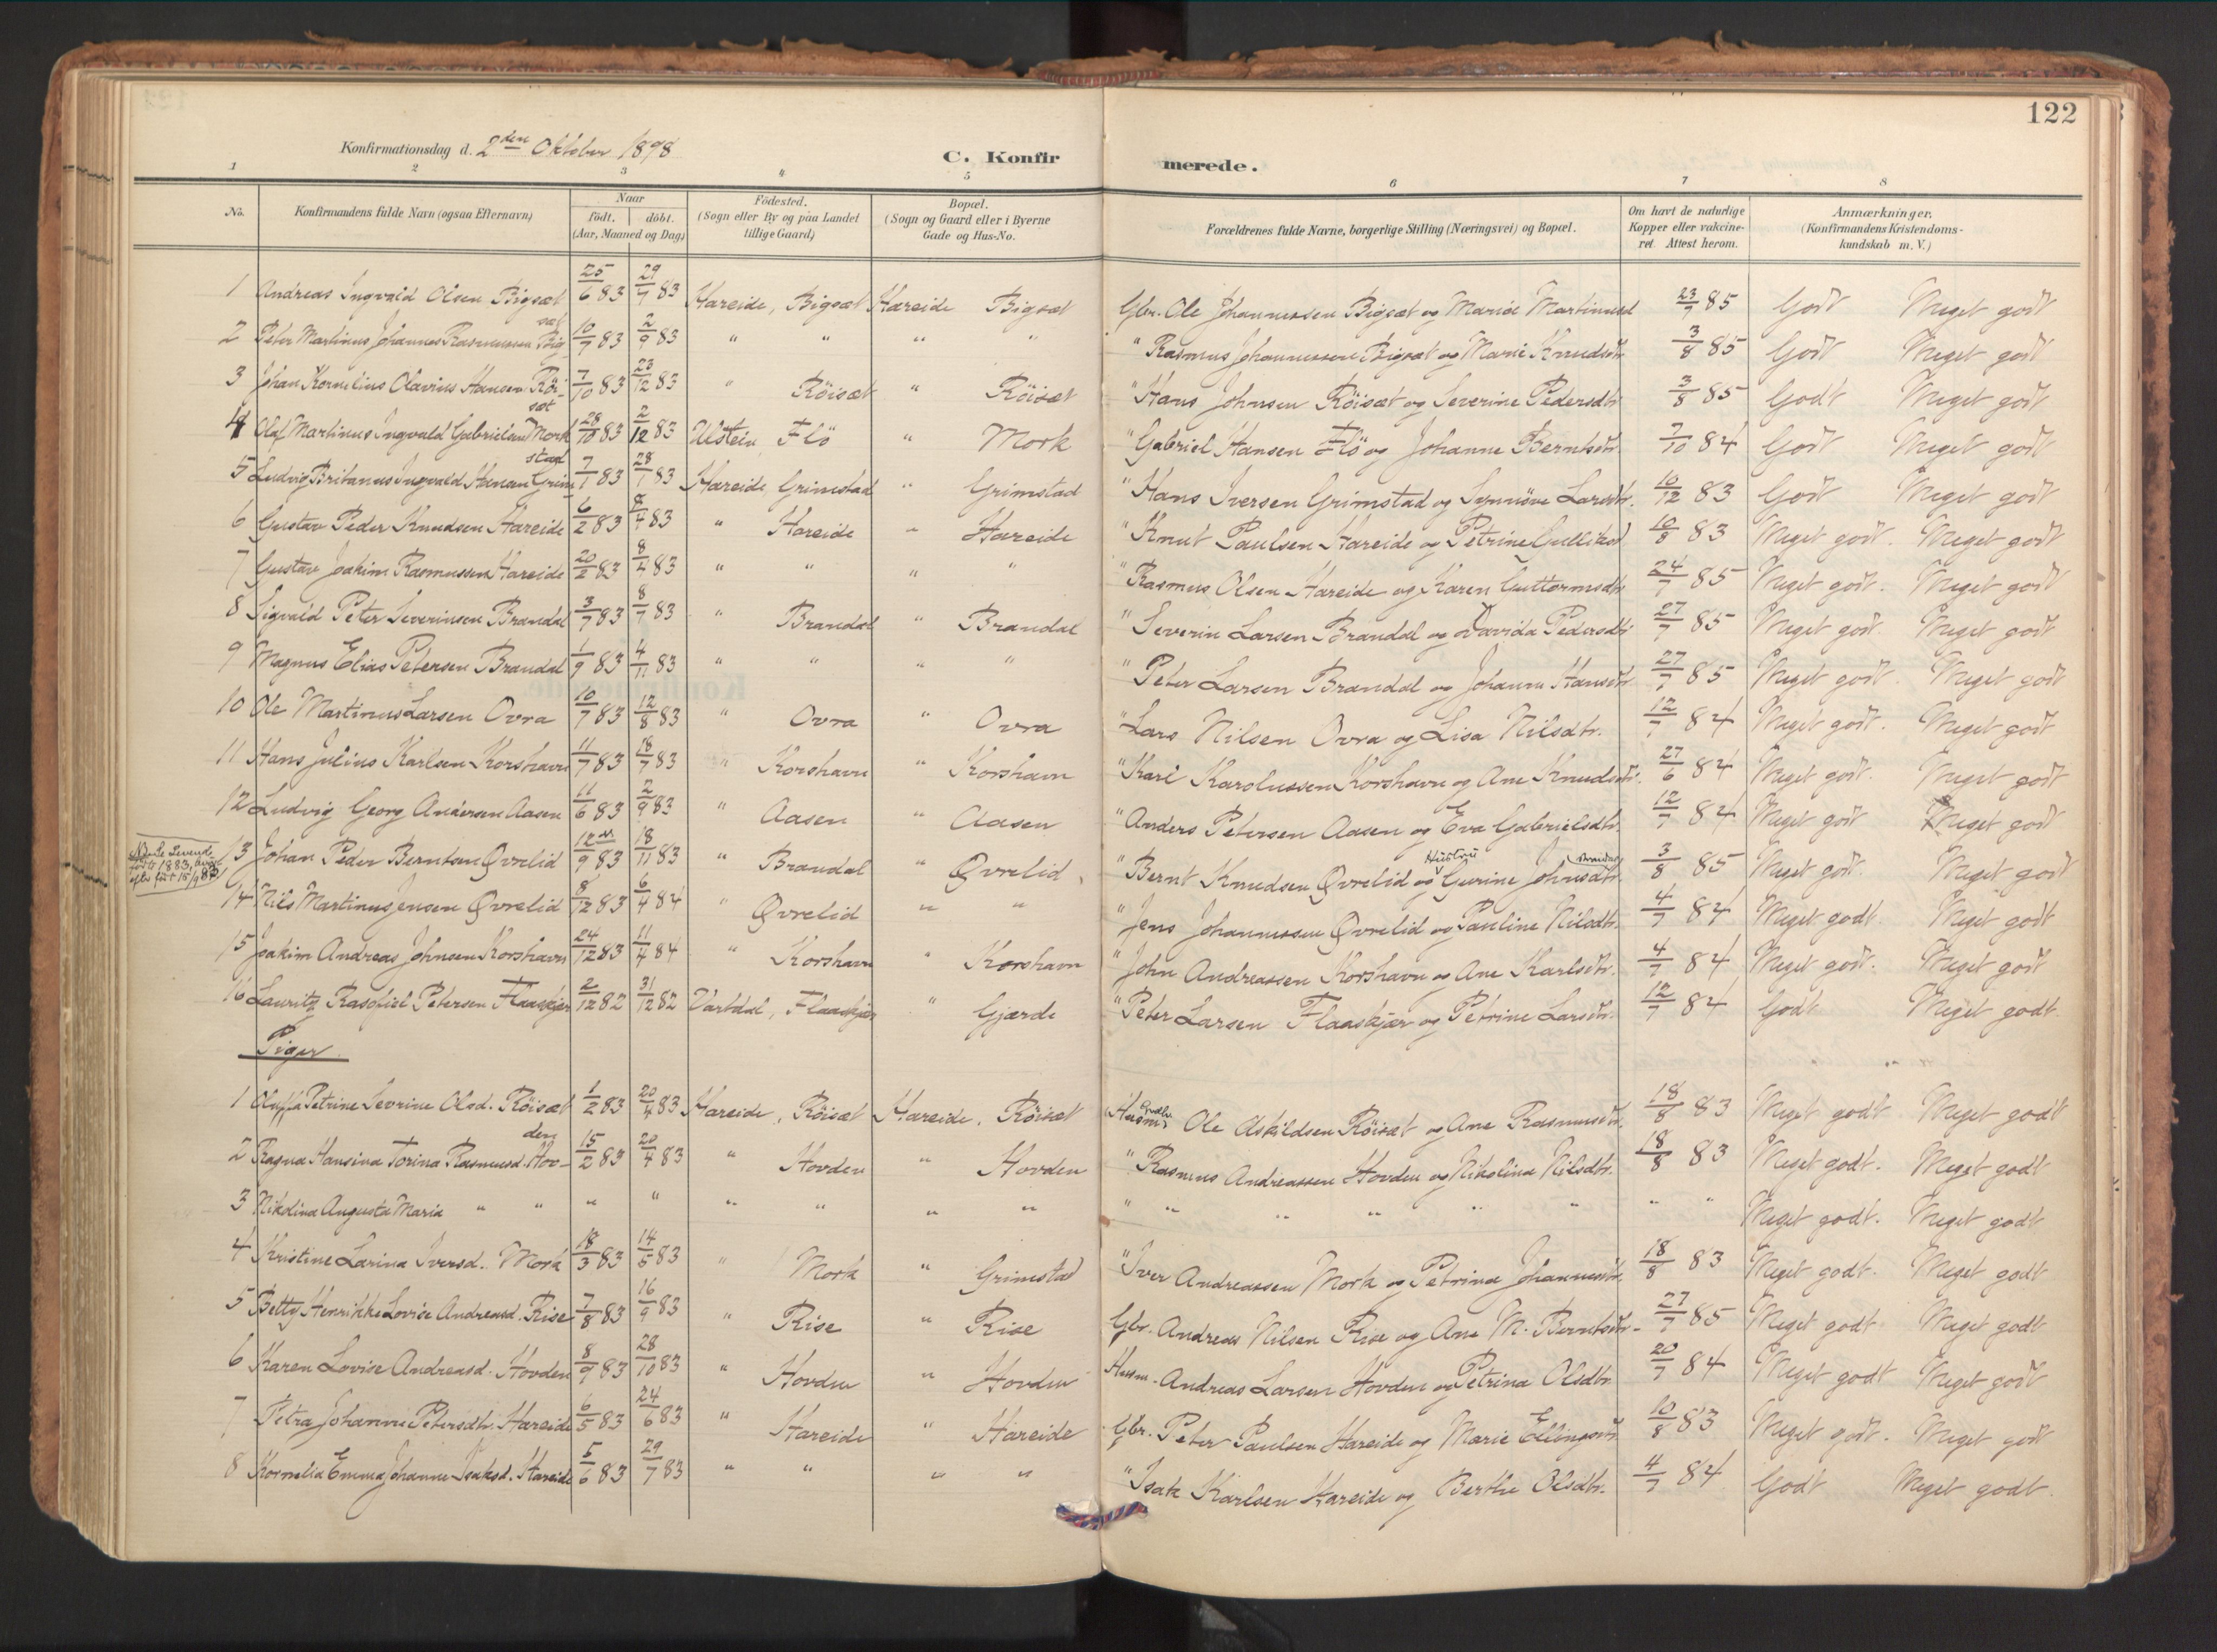 122
Konfirmationsdag d. 2den Oktober 1898
C. Konfirmerede.
1 2 3 4 5 6 7 8
No. Konfirmandens fulde Navn (ogsaa Efternavn) Naar født. døbt. (Aar, Maaned og Dag) Fødested. (Sogn eller By og paa Landet tillige Gaard) Bopæl. (Sogn og Gaard eller i Byerne Gade og Hus-No. Forældrenes fulde Navne, borgerlige Stilling (Næringsvei) og Bopæl. Om havt de naturlige Kopper eller vakcineret. Attest herom. Anmærkninger. (Konfirmandens Kristendomskundskab m. V.)
1 Andreas Ingvald Olsen Bigsæt 25/6 83 29/7 83 Hareide, Bigsæt Hareide Bigsæt Gbr. Ole Johannessen Bigsæt og Marie Martinusd 23/7 85 Godt Meget godt
2 Peter Martinus Johannes Rasmussen Bigsæt 10/7 83 2/9 83 " " " " " Rasmus Johannessen Bigsæt og Marie Knudsdtr 3/8 85 Godt Meget godt
3 Johan Kornelius Olavius Hansen Röisæt 7/10 83 23/12 83 " Röisæt " Röisæt " Hans Johnsen Röisæt og Severine Pedersdtr 3/8 85 Godt Meget godt
4 Olaf Martinus Ingvald Gabrielsen Mork 28/10 83 2/12 83 Ulstein, Flö " Mork " Gabriel Hansen Flö og Johanne Berntsdtr. 7/10 84 Godt Meget godt
5 Ludvig Britanus Ingvald Hansen Grimstad 7/1 83 28/1 83 Hareide, Grimstad " Grimstad " Hans Iversen Grimstad og Synnöve Larsdtr. 16/12 83 Godt Meget godt
6 Gustav Peder Knudsen Hareide 6/2 83 8/4 83 " Hareide " Hareide " Knut Paulsen Hareide og Petrine Gulliksd 10/8 83 Meget godt. Meget godt
7 Gustav Joakim Rasmussen Hareide 20/2 83 8/4 83 " " " " " Rasmus Olsen Hareide og Karen Guttormsdtr 24/7 85 Meget godt. Meget godt
8 Sigvald Peter Severinsen Brandal 3/7 83 8/7 83 " Brandal " Brandal " Severin Larsen Brandal og Davida Pedersdtr 27/7 85 Meget godt. Meget godt
9 Magnus Elias Petersen Brandal 1/9 83 4/11 83 " " " " " Peter Larsen Brandal og Johanne Hansdtr 27/7 85 Meget godt. Meget godt
10 Ole Martinus Larsen Ovra 10/7 83 12/8 83 " Ovra " Ovra " Lars Nilsen Ovra og Lisa Nilsdtr. 12/7 84 Meget godt. Meget godt
11 Hans Julius Karlsen Korshavn 11/7 83 18/7 83 " Korshavn " Korshavn " Karl Karolussen Korshavn og Ane Knudsdtr. 27/6 84 Meget godt. Meget godt
12 Ludvig Georg Andersen Aasen 11/6 83 2/9 83 " Aasen " Aasen " Anders Petersen Aasen og Eva Gabrielsdtr. 12/7 84 Meget godt Meget godt
NB. Se Levende födte 1883,
13 Johan Peder Berntsen Øvrelid 12/9 83 18/11 83 " Brandal " Øvrelid. " Bernt Knudsen Øvrelid og Hustru Gurine Johnsdtr. 3/8 85 Meget godt. Meget godt
14 Nils Martinus Jensen Øvrelid 8/12 83 6/4 84 " Øvrelid " " " Jens Johannessen Øvrelid og Pauline Nilsdtr. 4/7 84 Meget godt Meget godt
15 Joakim Andreas Johnsen Korshavn 24/12 83 11/4 84 " Korshavn " Korshavn " John Andreassen Korshavn og Ane Karlsdtr. 4/7 84 Meget godt. Meget godt
16 Lauritz Petersen Flaaskjær 2/12 82 31/12 82 Vartdal, Flaaskjær " Gjærde " Peter Larsen Flaaskjær og Petrine Larsdtr. 12/7 84 Godt Meget godt.
Piger
1 Oluffa Petrine Sevrine Olsd. Röisæt 1/2 83 20/4 83 Hareide, Röisæt Hareide, Röisæt Husm. Ole Askildsen Röisæt og Ane Rasmusdtr. 18/8 83 Meget godt Meget godt
2 Ragna Hansina Torina Rasmusd. Hovden 15/2 83 20/4 83 " Hovden " Hovden " Rasmus Andreassen Hovden og Nikolina Nilsdtr. 18/8 83 Meget godt. Meget godt
3 Nikolina Augusta Maria " " " " " " " " " " " " " " " " " Meget godt. Meget godt
4 Kristine Larina Iversd. Mork 18/3 83 14/5 83 " Mork " Grimstad " Iver Andreassen Mork og Petrina Johannesdtr. 18/8 83 Meget godt. Meget godt
5 Betty Henrikke Lovise Andreasd. Rise 7/8 83 16/9 83 " Rise " Rise Gbr. Andreas Nilsen Rise og Ane M. Berntsdtr. 27/7 85 Meget godt Meget godt
6 Karen Lovise Andreasd. Hovden 8/9 83 28/10 83 " Hovden " Hovden Husm. Andreas Larsen Hovden og Petrina Olsdtr 20/7 84 Meget godt Meget godt
7 Petra Johanne Petersdtr. Hareide 6/5 83 24/6 83 " Hareide " Hareide Gbr. Peter Paulsen Hareide og Marie Ellingsdtr 10/8 83 Meget godt. Meget godt
8 Kornelia Emma Johanne Isaksd. Hareide 5/6 83 29/7 83 " " " " " Isak Karlsen Hareide og Berthe Olsdtr. 4/7 84 Godt Meget godt.